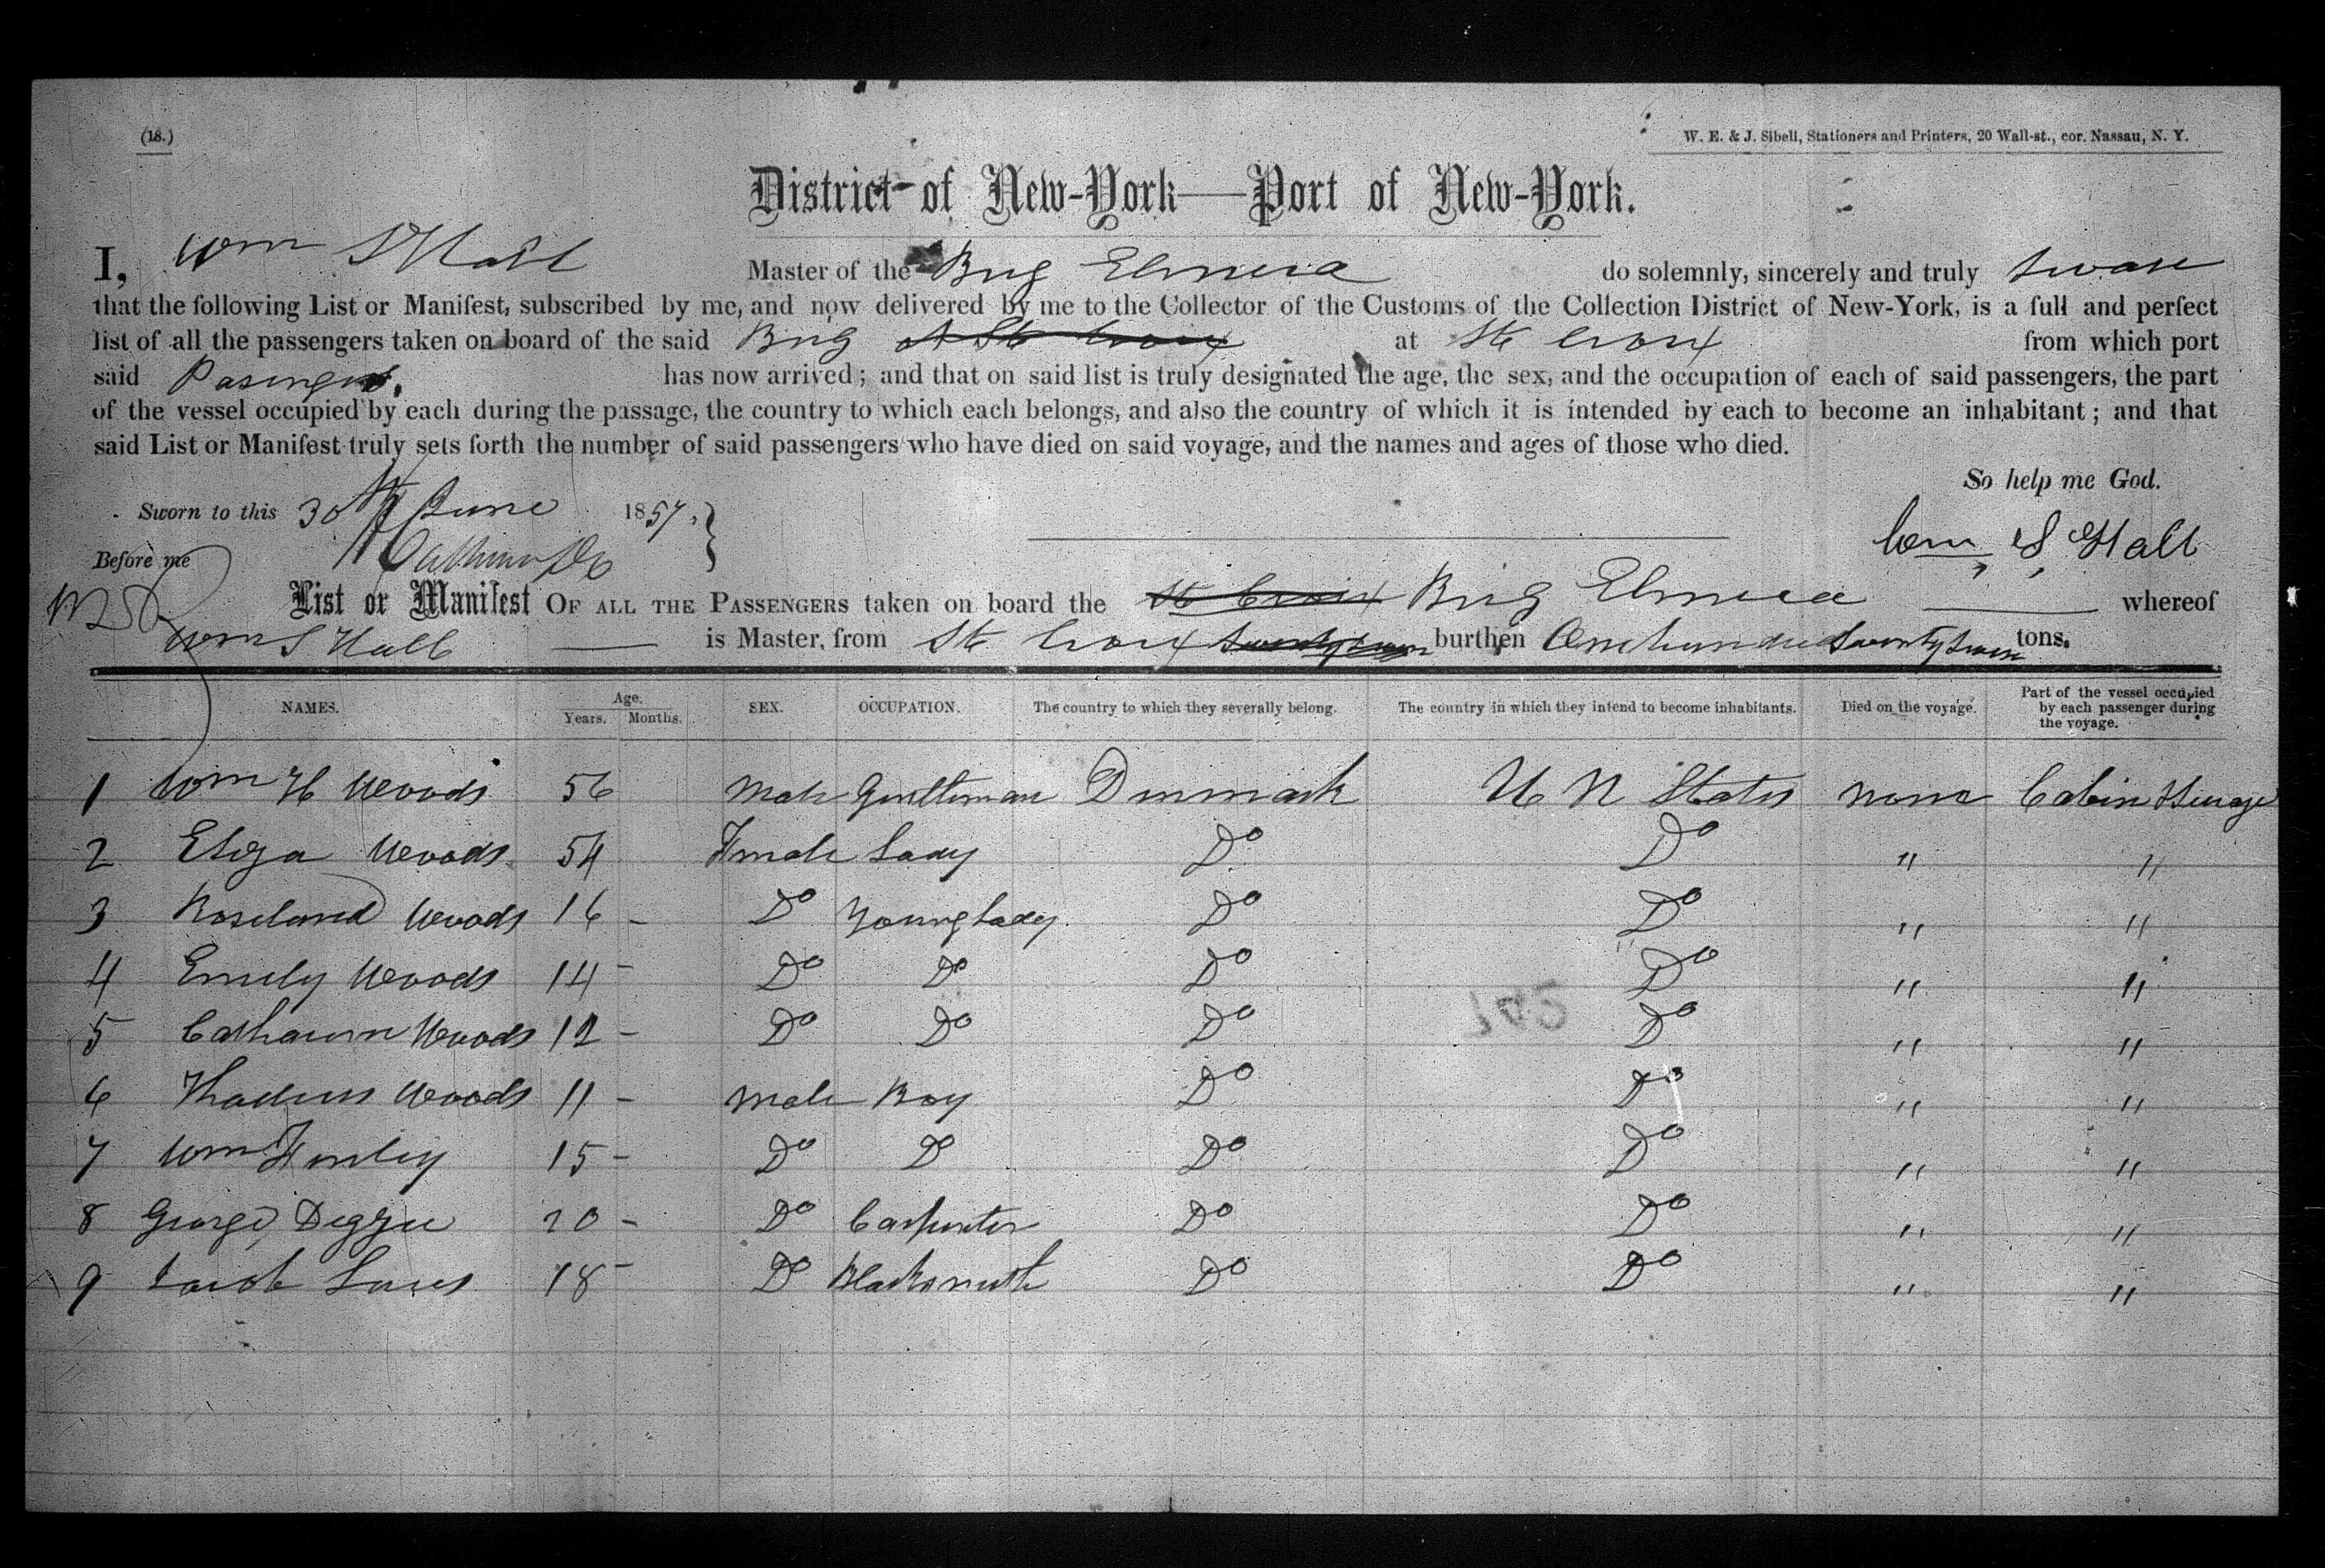 (18.)
W. E. & J. Sibell, Stationers and Printers, 20 Wall-st., cor. Nassau, N. Y.
District of New-York—Port of New-York.
I, Wm S Hall Master of the Brig Elmira do solemnly, sincerely and truly sware
that the following List or Manifest, subscribed by me, and now delivered by me to the Collector of the Customs of the Collection District of New-York, is a full and perfect
list of all the passengers taken on board of the said Brig at St Croix from which port
said has now arrived; and that on said list is truly designated the age, the sex, and the occupation of each of said passengers, the part
of the vessel occupied by each during the passage, the country to which each belongs, and also the country of which it is intended by each to become an inhabitant; and that
said List or Manifest truly sets forth the number of said passengers who have died on said voyage, and the names and ages of those who died.
So help me God.
Sworn to this 30th June 1857.
Wm S Hall
Before me
List or Manifest OF ALL THE PASSENGERS taken on board the St Croix Brig Elmira whereof
Wm S Hall is Master, from St Croix burthen One hundred tons.
NAMES. Age. Years. Months. SEX. OCCUPATION. The country to which they severally belong. The country in which they intend to become inhabitants. Died on the voyage. Part of the vessel occupied by each passenger during the voyage.
1 Wm H Woods 56 Male Denmark U N States None Cabin
2 Eliza Woods 54 Female Lady Do Do " "
3 Woods 16 - Do Young Lady Do Do " "
4 Emily Woods 14 - Do Do Do Do " "
5 Woods 12 - Do Do Do Do " "
6 Woods 11 - Male Boy Do Do " "
7 Wm 15 - Do Do Do Do " "
8 George 20 - Do Carpenter Do Do " "
9 Jacob 18 - Do Blacksmith Do Do " "